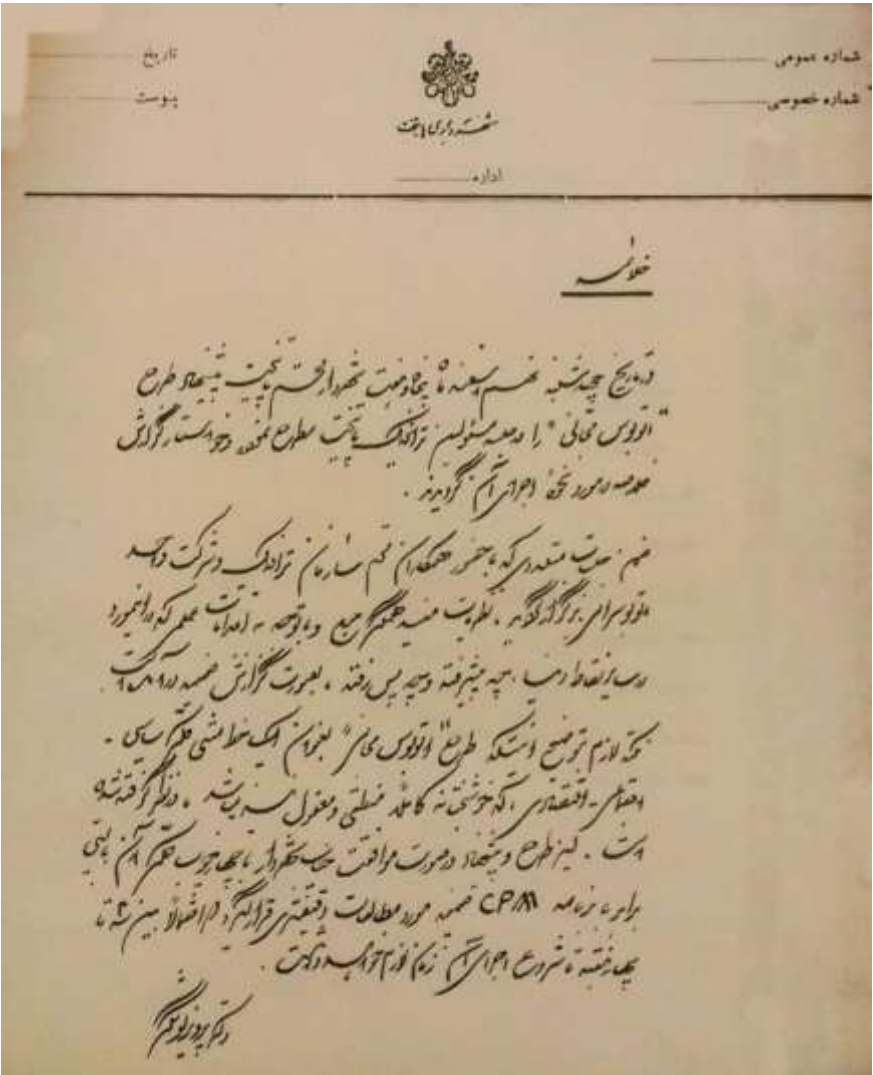 شماره عمومی
شماره خصوصی
تاریخ
پیوست
شهرداری پایتخت
اداره
خلاصه
در تاریخ پنجشنبه نهم اسفند ماه پنجاه و هفت شهردار محترم پایتخت پیشنهاد طرح
"اتوبوس مجانی" را در جلسه مسئولین ترافیک پایتخت مطرح نموده و خواستار گزارش
خلاصه در مورد نحوه اجرای آن گردیدند.
ضمن جلسات متعددی که با حضور همکاران محترم سازمان ترافیک و شرکت واحد
اتوبوسرانی برگزار گردید، نظریات مفید همگی جمع و با توجه به اقدامات عملی که در اینمورد
در سایر نقاط دنیا، چه پیشرفته و چه پس رفته، بصورت گزارش ضمیمه در آمده است.
نکته لازم بتوضیح اینستکه طرح "اتوبوس مجانی" بعنوان یک خط مشی سیاسی -
اجتماعی - اقتصادی، که خوشبختانه کاملا منطقی و معقول نیز میباشد، در نظر گرفته شده
است. لیکن طرح و پیشنهاد در صورت موافقت جناب شهردار یا چهارچوب آن بایستی
برابر با برنامه CPM ضمیمه مورد مطالعات دقیقتری قرار گیرد و احتمالا بین سه تا
چهار هفته تا شروع اجرای آن زمان لازم خواهد داشت.
دکتر پرویز